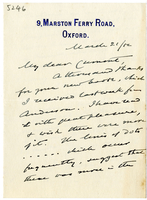 5246
9, MARSTON FERRY ROAD,
OXFORD.
March 21/12
My dear Cumont,
A thousand thanks
for your new book, which
I received last week from
Anderson. I have read
it with great pleasure,
& wish there were more
of it. The lines of dots
...... which occur
frequently, suggest that
there was more in the